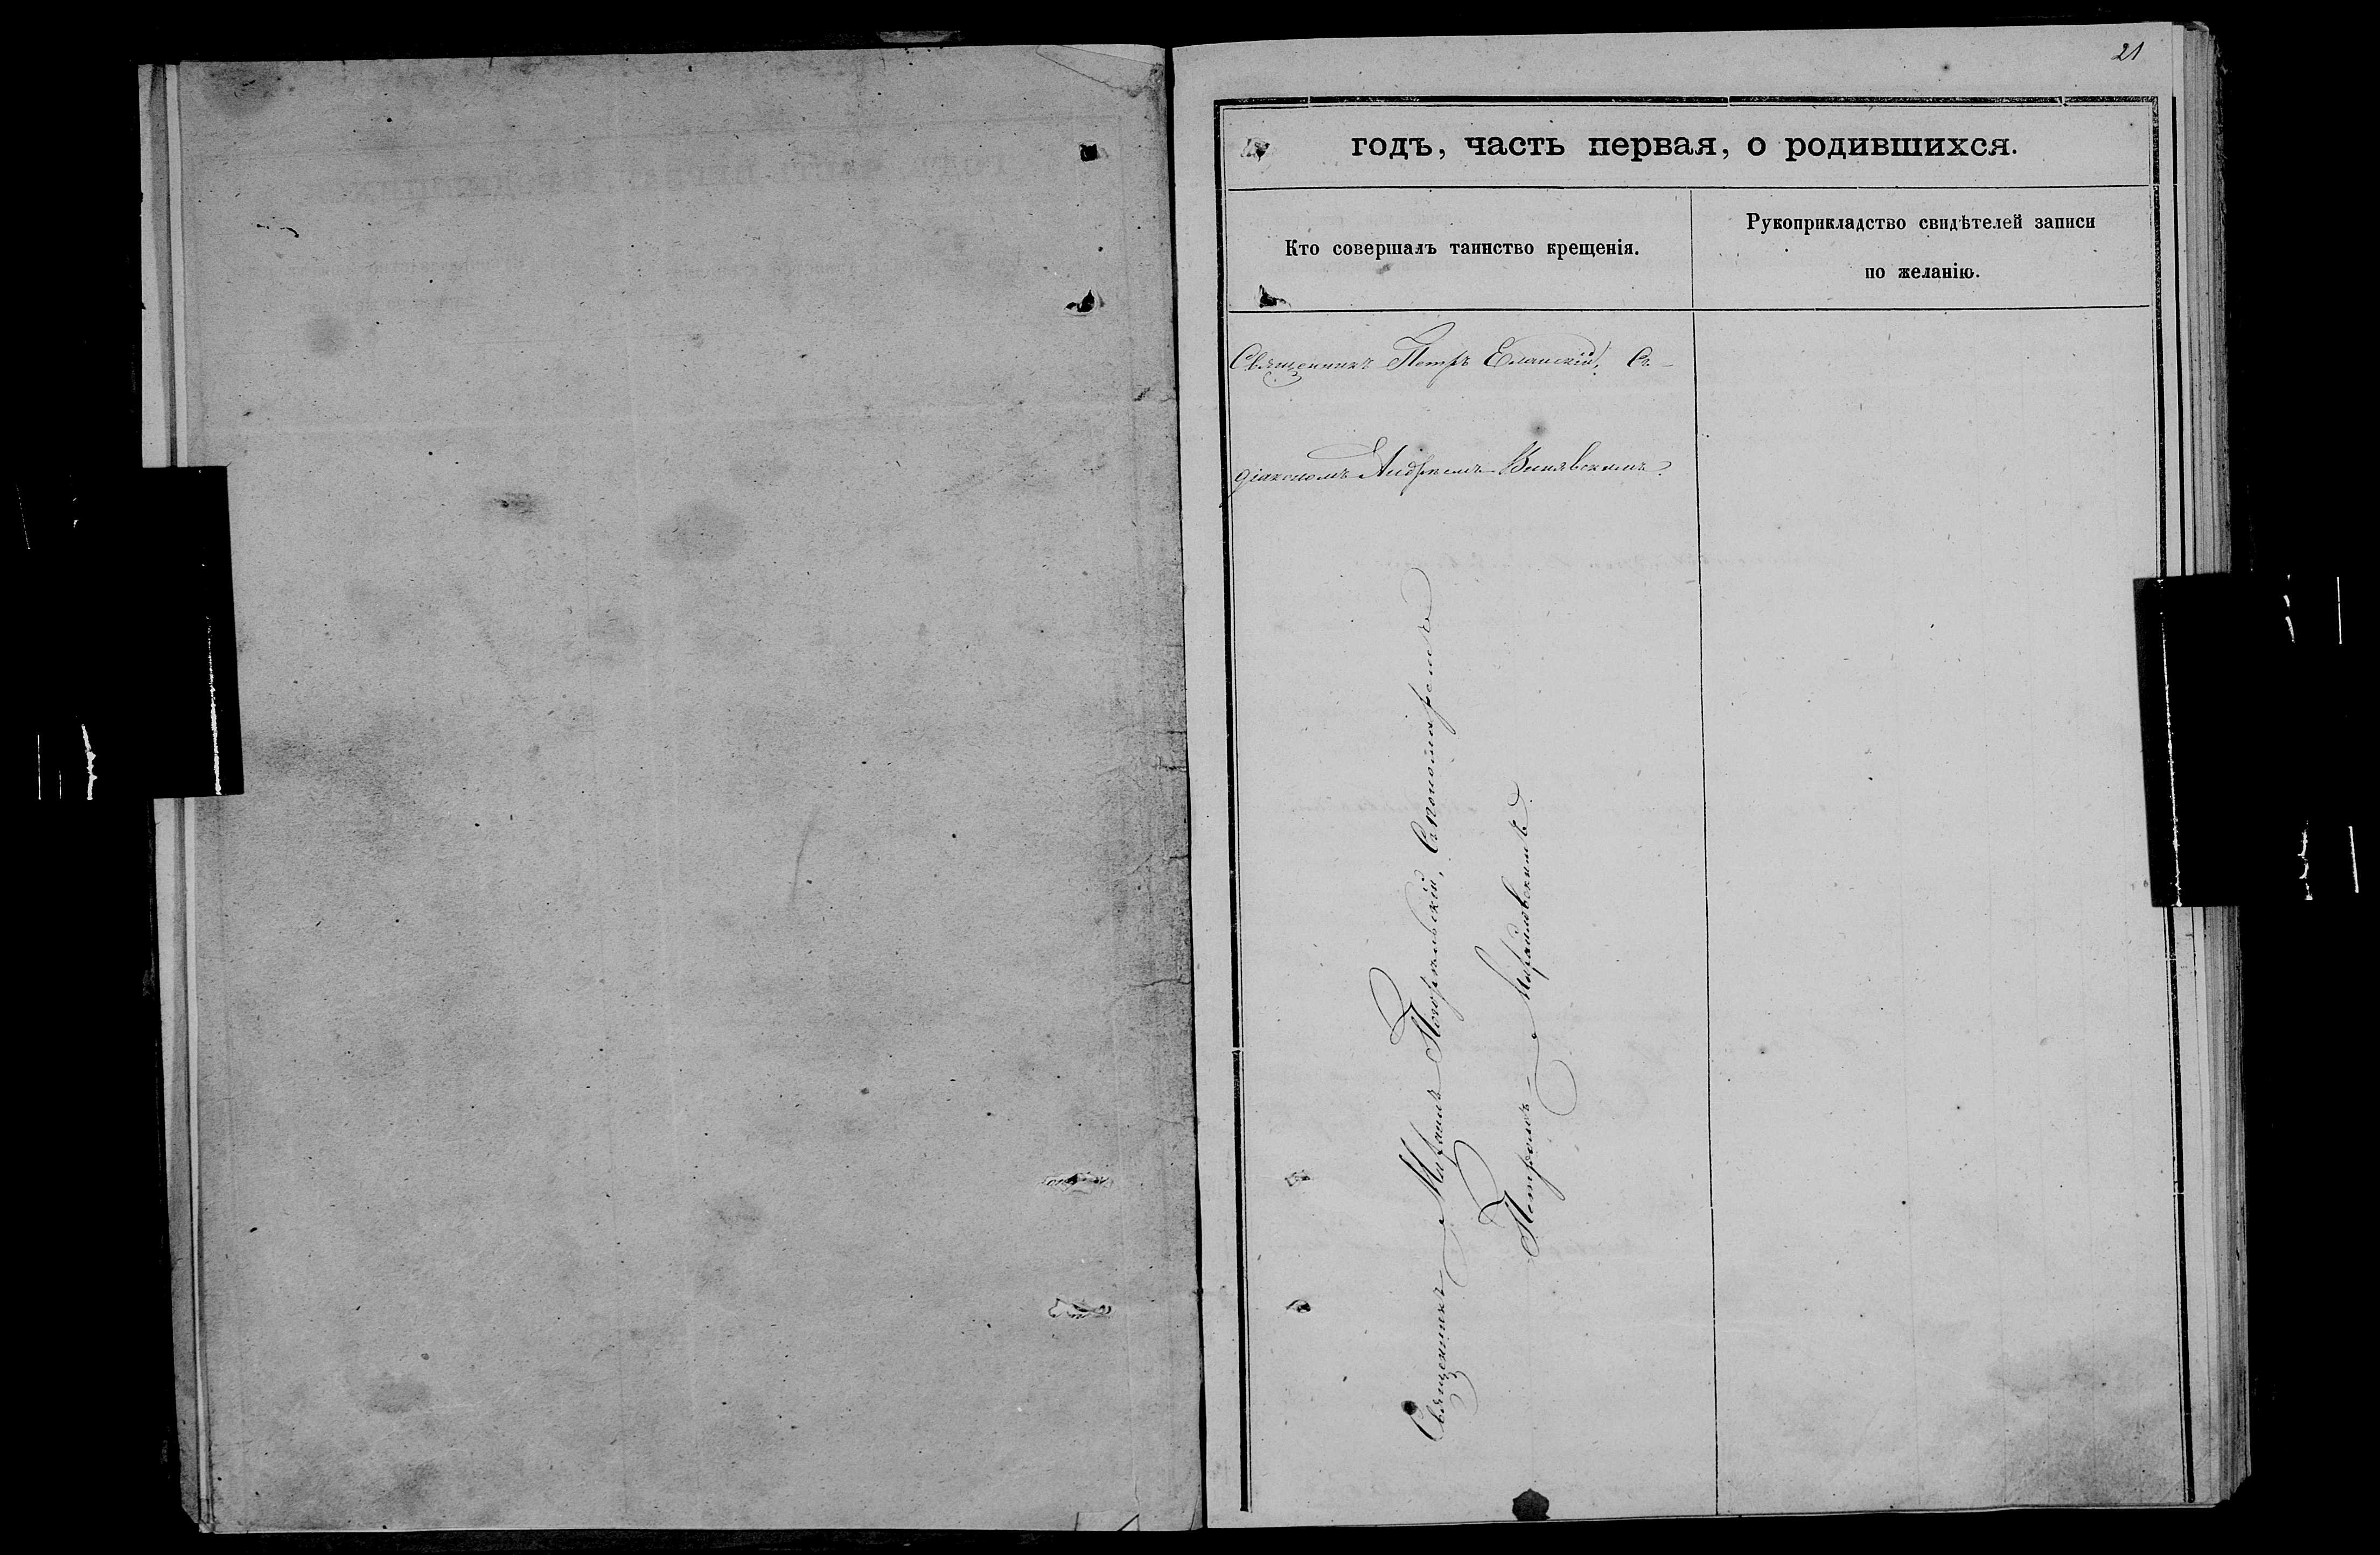 21
годъ, часть первая, о родившихся.
Кто совершалъ таинство крещенія.
Рукоприкладство свидѣтелей записи
по желанію.
Священникъ Петръ Еланскій, Съ
діакономъ Андреемъ
Священникъ Михаилъ Погорѣльскій, Съ пономаремъ
Петромъ = Михайловскимъ